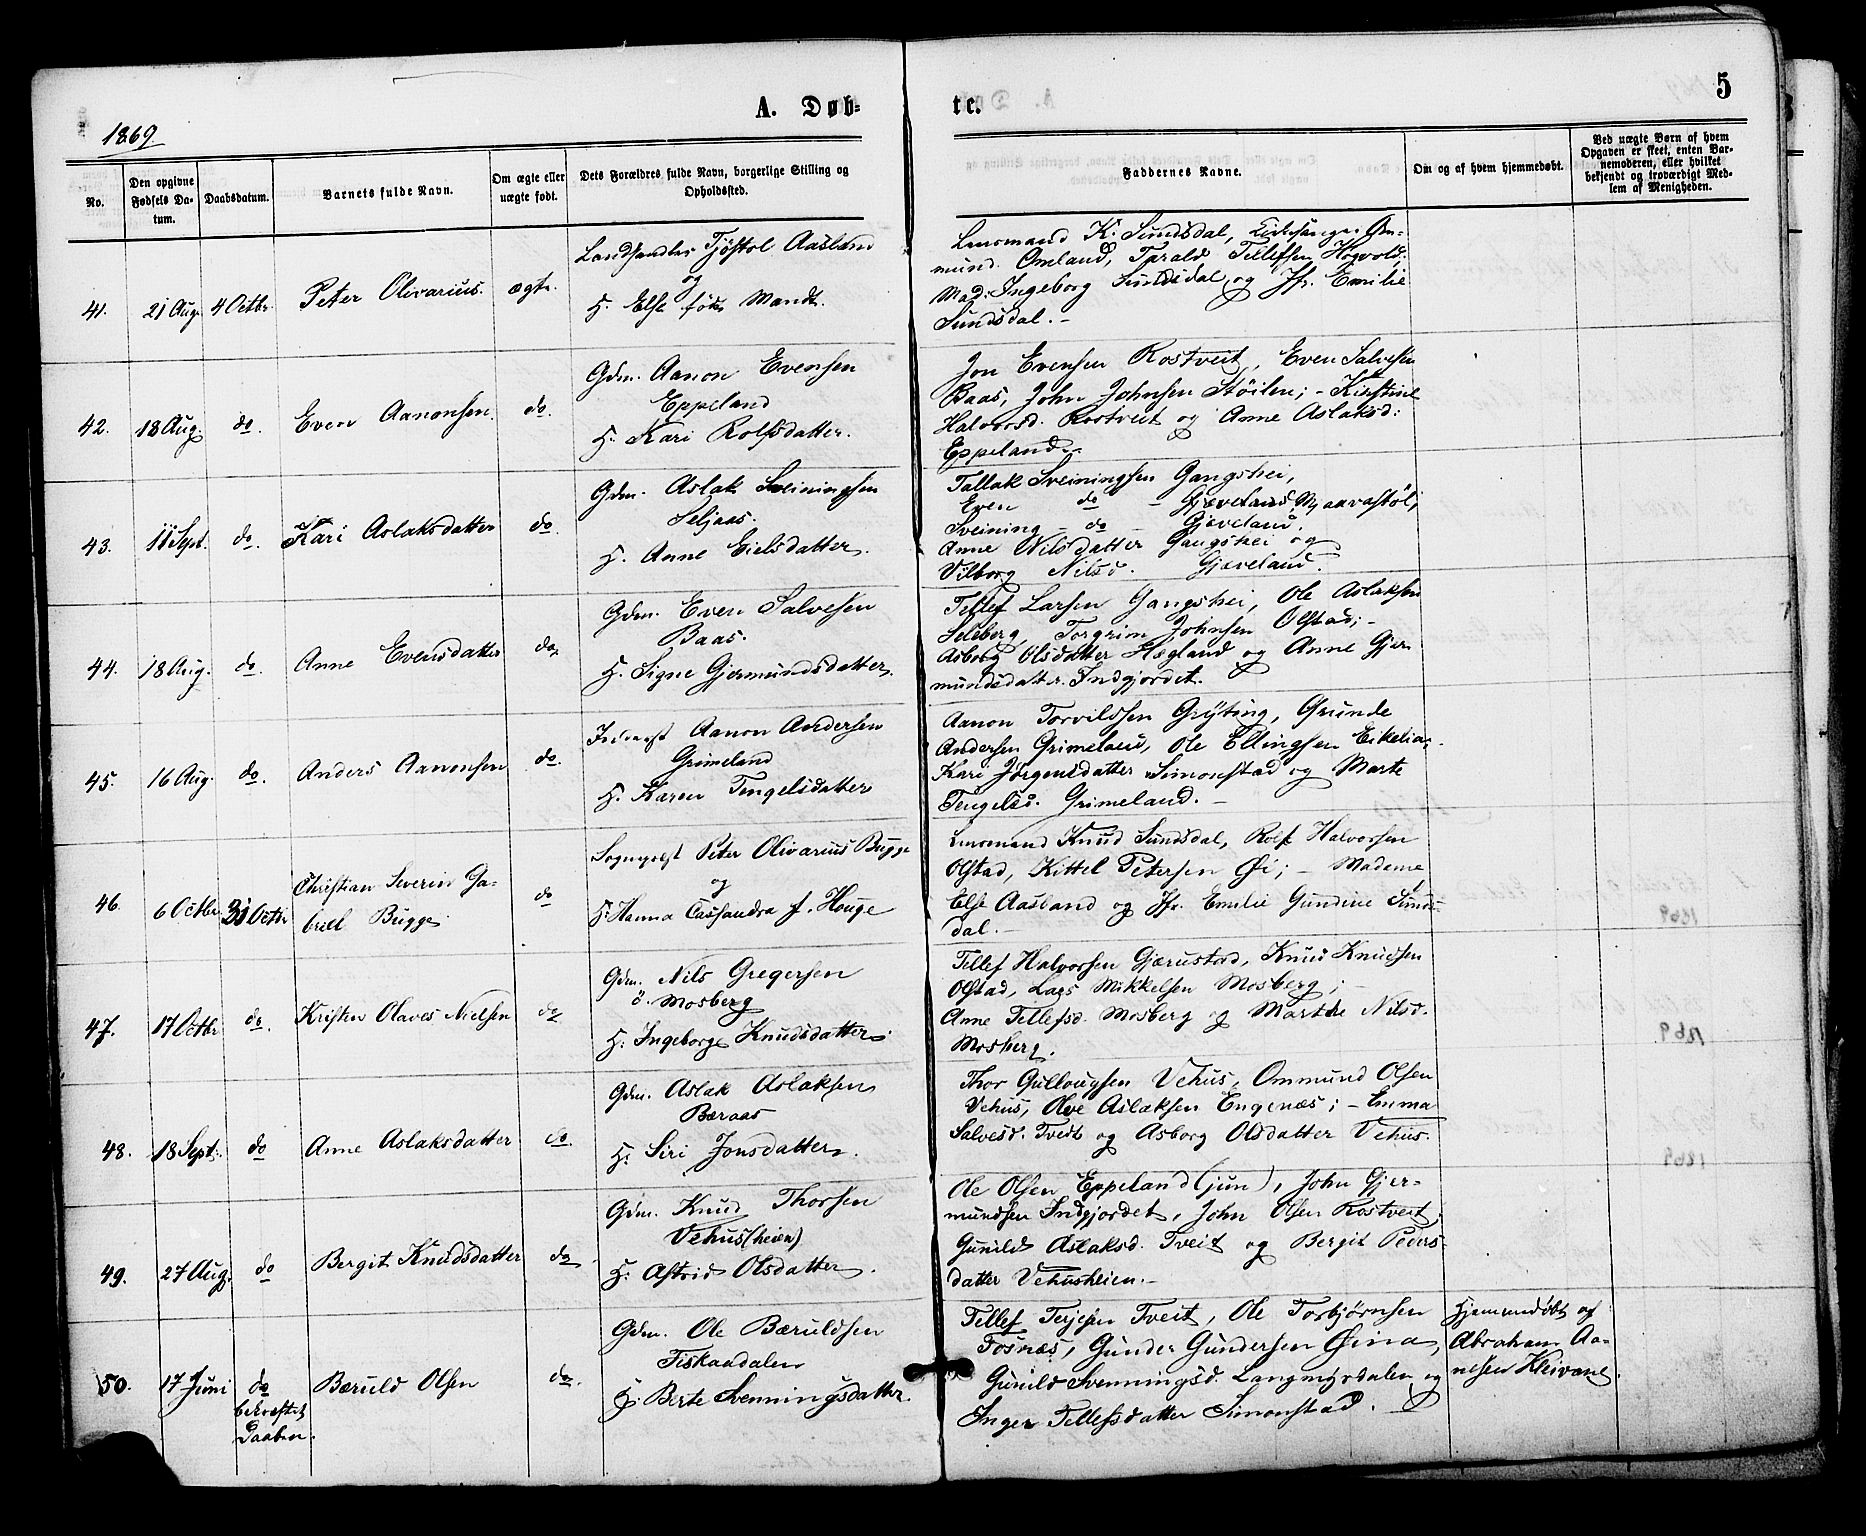 A. Døb-
te.
5
1869.
No.
Den opgivne Fødsels Da-tum.
Daabsdatum.
Barnets fulde Navn.
Om ægte eller uægte født.
Dets Forældres fulde Navn, borgerlige Stilling og Opholdssted.
Faddernes Navne.
Om og af hvem hjemmedøbt.
Ved uægte Børn af hvem Opgaven er skeet, enten Bar-nemoderen, eller hvilket bekjendt og troværdigt Med-lem af Menigheden.
41.
21 Aug.
4 Octbr.
Peter Olivarius.
ægte
Landhandler Tjøstol Aasland
og
H. Else født Mandt.
Lensmand K. Sundsdal, Kirkesanger Om-
mund Omland, Tarald Tellefsen Høgvold.
Mad. Ingeborg Sundsdal og Jfr. Emilie
Sundsdal. -
42.
18 Aug.
do.
Even Aanonsen.
do.
Gdm. Aanon Evensen
Eppeland
H. Kari Rolfsdatter.
Jon Evensen Rostveit, Even Salvesen
Baas, John Johnsen Støilen; - Kirstine
Halvorsd. Rostveit og Anne Aslaksd:
Eppeland. -
43.
11 Sept.
do.
Kari Aslaksdatter
do.
Gdm. Aslak Sveiningsen
Seljaas.
H. Anne Eielsdatter.
Tallak Sveiningsen Gangshei,
Even do - Gjeveland,
Sveining - do - Gjeveland.
Anne Nilsdatter Gangshei og
Vilborg Nilsd. Gjeveland.
44.
18 Aug.
do.
Anne Evensdatter
do.
Gdm. Even Salvesen
Baas.
H. Signe Gjermundsdatter.
Tellef Larsen Gangshei, Ole Aslaksen
Seleberg, Torgrim Johnsen Olstad; -
Asborg Olsdatter Hægland og Anne Gjer-
mundsdatter Indgjordet.
45.
16 Aug.
do.
Anders Aanonsen
do.
Aanon Andersen
Grimeland
H. Karen Tengelsdatter
Aanon Torvildsen Gryting, Grunde
Andersen Grimeland, Ole Ellingsen Eikelia.
Kari Jørgensdatter Simonstad og Marte
Tengelsd. Grimeland. -
46.
6 Octbr
31 Octbr
Christian Severin Ga-
briel Bugge
do
Sogneprest Peter Olivarius Bugge
og
H. Hanna Cassandra f. Houge
Lensmand Knud Sundsdal, Rolf Halvorsen
Olstad, Kittel Petersen Øi; - Madame
Else Aasland og Jfr. Emilie Gundine Sunds-
dal. -
47.
17 Octbr
do.
Kristen Olaves Nielsen
do
Gdm. Nils Gregersen
ö. Mosberg
H. Ingeborg Knudsdatter
Tellef Halvorsen Gjærustad, Knud Knudsen
Olstad, Lars Mikkelsen Mosberg; -
Anne Tellefsd. Mosberg og Marthe Nilsd.
Mosberg.
48.
18 Sept.
do
Anne Aslaksdatter
do.
Gdm. Aslak Aslaksen
Bæraas
H. Siri Jonsdatter.
Thor Gullougsen Vehus, Ommund Olsen
Vehus, Olve Aslaksen Engenæs; - Emma
Salvesd. Tveit og Asborg Olsdatter Vehus.
49.
27 Aug.
do
Bergit Knudsdatter
do.
Gdm. Knud Thorsen
Vehus(heien)
H. Astrid Olsdatter.
Ole Olsen Eppeland (jun), John Gjer-
mundsen Indgjordet, John Olsen Rostveit,
Gunild Aslaksd. Tveit og Bergit Peders-
datter Vehusheien. -
50.
17 Juni
do
bekræftet
Daaben.
Bæruld Olsen
do.
Gdm. Ole Bæruldsen
Fiskaadalen
H. Berte Svenningsdatter.
Tellef Terjesen Tveit, Ole Torbjørnsen
Fosnæs, Gunder Gundersen Øina,
Gunild Svenningsd. Langmyrdalen og
Inger Tellefsdatter Simonstad.
Hjemmedøbt af
Abraham Aa-
nesen Kleivene.